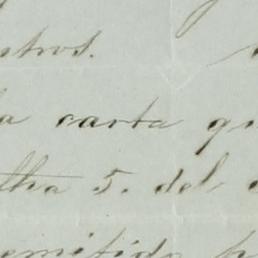 stros.
la carta qu
fha 5. del
emitido p